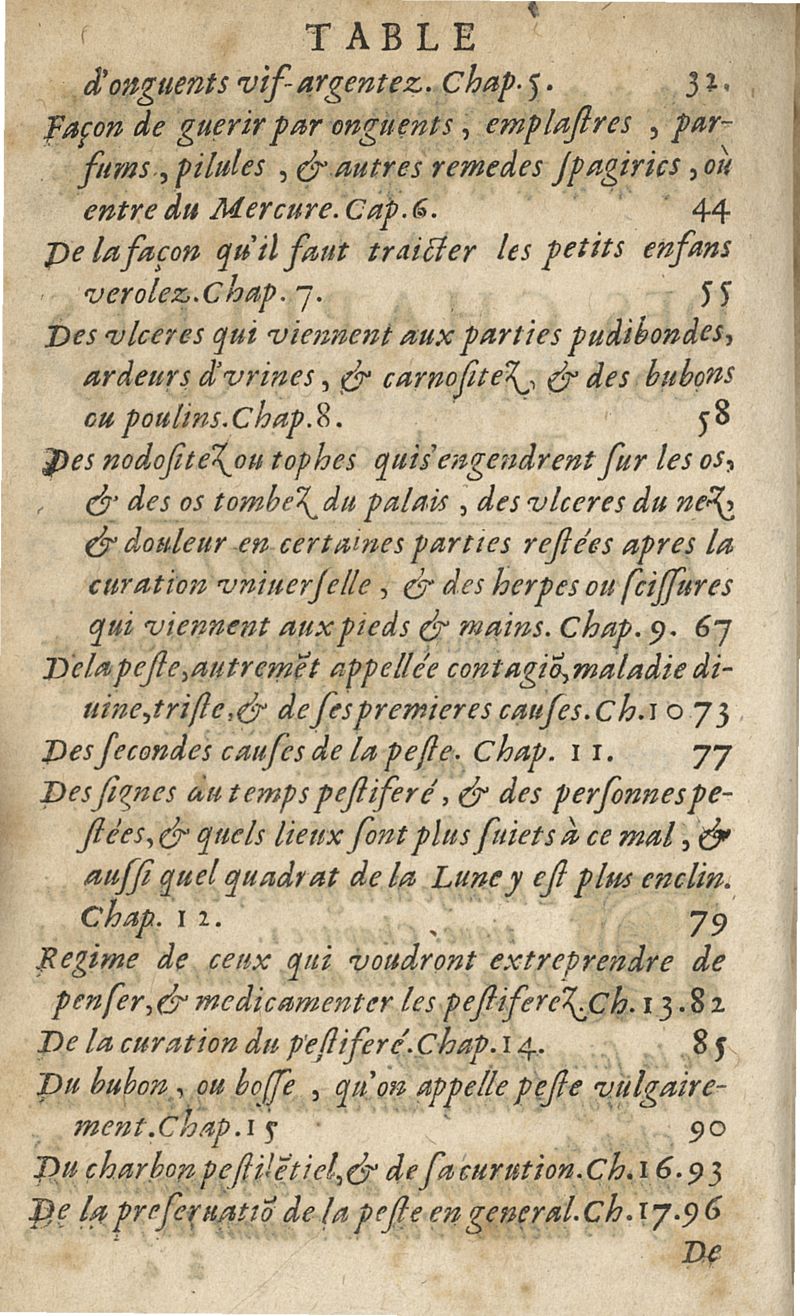 TABLE
d'onguents vif-argentez. Chap. 5. 32.
Façon de guerir par onguents, emplaſtres, par-
fums, pilules, & autres remedes ſpagirics, où
entre du Mercure. Cap. 6. 44
De la façon qu'il faut traicter les petits enfans
verolez. Chap. 7. 55
Des vlceres qui viennent aux parties pudibondes,
ardeurs d'vrines, & carnoſitez, & des bubons
ou poulins. Chap. 8. 58
Des nodoſitez ou tophes qui s'engendrent ſur les os,
& des os tombez du palais, des vlceres du nez,
& douleur en certaines parties reſtées apres la
curation vniuerſelle, & des herpes ou ſciſſures
qui viennent aux pieds & mains. Chap. 9. 67
De la peſte, autremēt appellée contagiõ, maladie di-
uine, triſte, & de ſes premieres cauſes. Ch. 10 73
Des ſecondes cauſes de la peſte. Chap. 11. 77
Des ſignes au temps peſtiferé, & des perſonnes pe-
ſtées, & quels lieux ſont plus ſuiets à ce mal, &
auſſi quel quadrat de la Lune y eſt plus enclin.
Chap. 12. 79
Regime de ceux qui voudront extreprendre de
penſer, & medicamenter les peſtiferez. Ch. 13. 82
De la curation du peſtiferé. Chap. 14. 85
Du bubon, ou boſſe, qu'on appelle peſte vulgaire-
ment. Chap. 15 90
Du charbon peſtilētiel, & de ſa curution. Ch. 16. 93
De la preſeruatiõ de la peſte en general. Ch. 17. 96
De